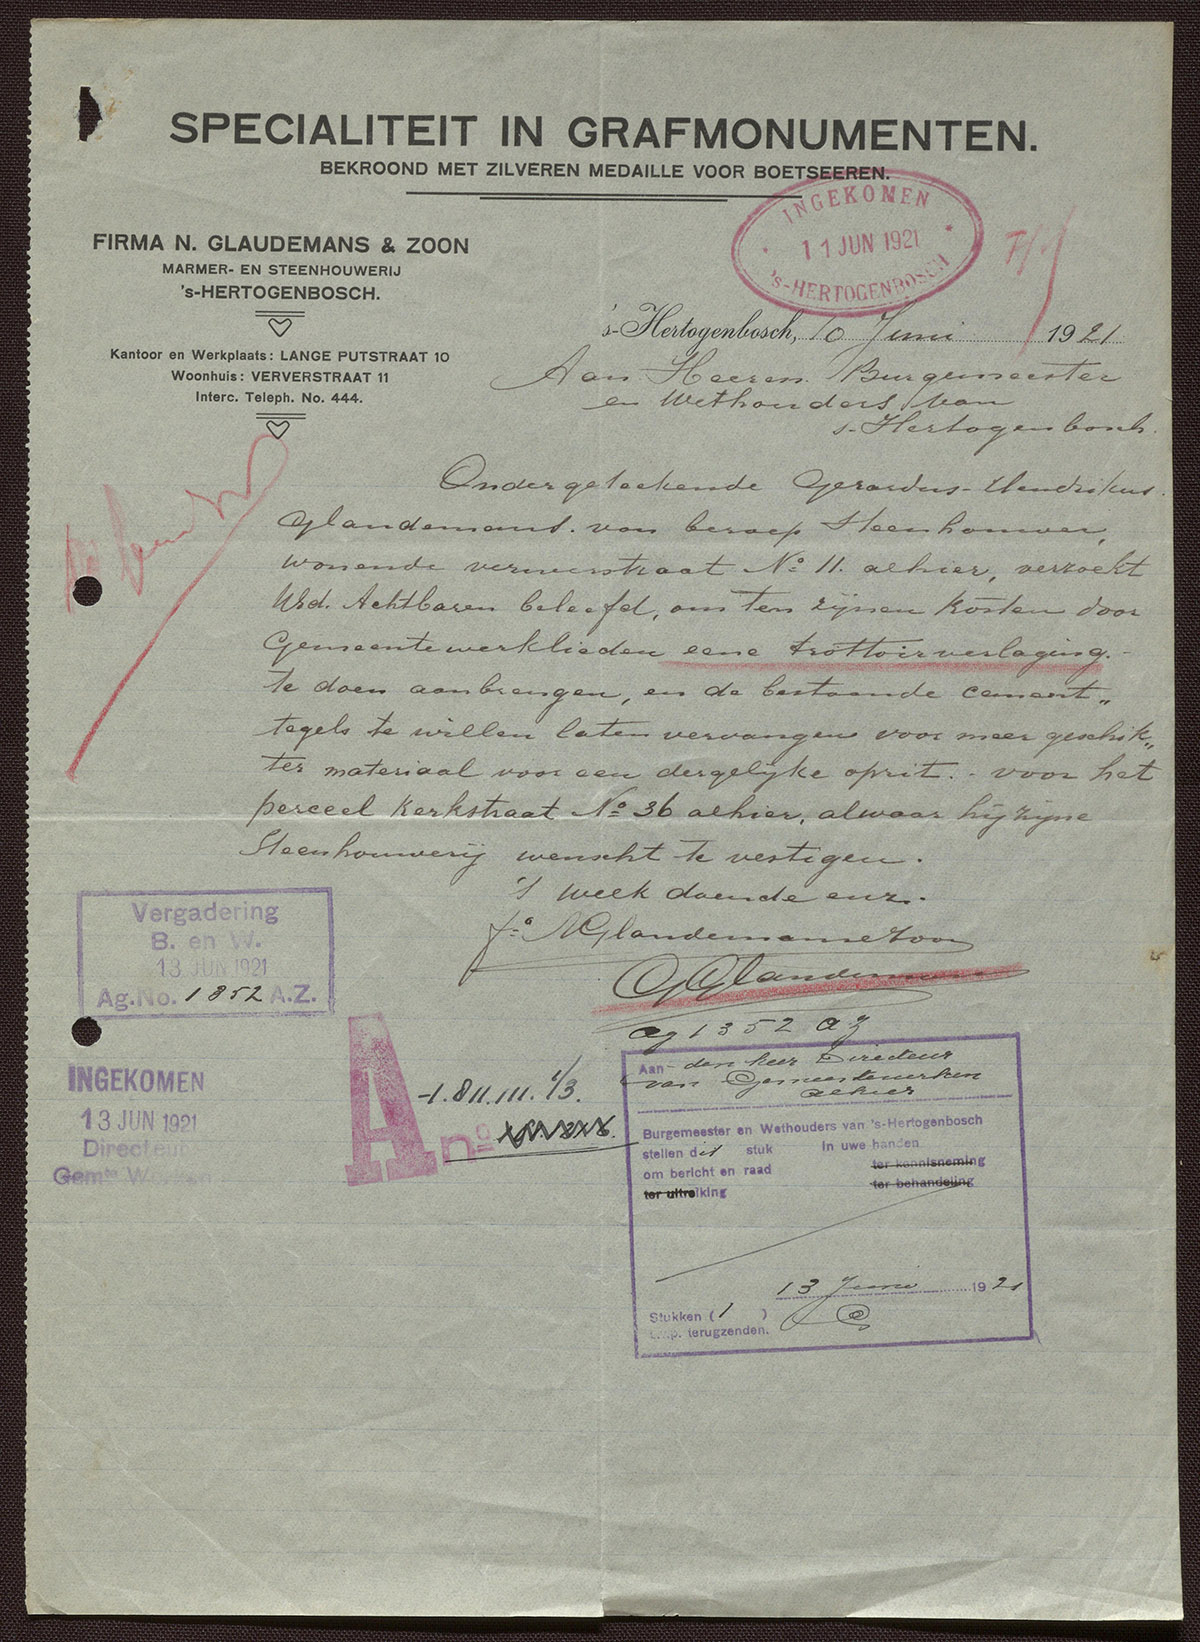 SPECIALITEIT IN GRAFMONUMENTEN.
BEKROOND MET ZILVEREN MEDAILLE VOOR BOETSEEREN.
FIRMA N. GLAUDEMANS & ZOON
MARMER- EN STEENHOUWERIJ
's-HERTOGENBOSCH.
Kantoor en Werkplaats: LANGE PUTSTRAAT 10
Woonhuis: VERVERSTRAAT 11
Interc. Teleph. No. 444.
INGEKOMEN
11 JUN 1921
's-HERTOGENBOSCH
's-Hertogenbosch, 10 Juni 1921
Aan Heeren Burgemeester
en Wethouders van
s-Hertogenbosch.
Ondergeteekende Gerardus-Hendrikus
Glaudemans. van beroep Steenhouwer,
wonende ververstraat No 11. alhier, verzoekt
UEd. Achtbaren beleefd, om ten zijnen kosten door
Gemeentewerklieden eene trottoirverlaging.-
te doen aanbrengen, en de bestaande cement„
tegels te willen laten vervangen voor meer geschik„
ter materiaal voor een dergelijke oprit. - voor het
perceel Kerkstraat No 36 alhier, alwaar hij zijne
Steenhouwerij wenscht te vestigen.
't welk doende enz.
fa N Glaudemans & zoon
G Glaudemans
ag 1352 az
Vergadering
B. en W.
13 JUN 1921
Ag.No. 1352 A.Z.
INGEKOMEN
13 JUN 1921
Directeur
Gemte Werken
A no
-1.811.111. 1/3.
Aan den heer Directeur
van Gemeentewerken
alhier
Burgemeester en Wethouders van 's-Hertogenbosch
stellen dit stuk in uwe handen
om bericht en raad ter kennisneming
ter uitreiking ter behandeling
13 Juni 1921
Stukken (1)
s.v.p. terugzenden.